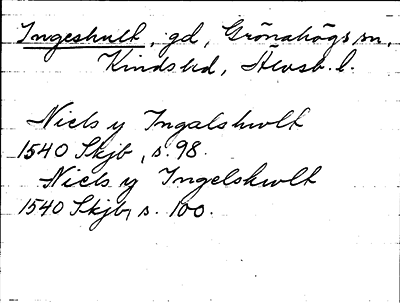 Ingeshult, gd, Grönahögs sn,
Kinds hd, Älvsb. l.
Niels y Ingalshwlt
1540 Skjb, s. 98.
Niels y Ingelshwlt
1540 Skjb, s. 100.